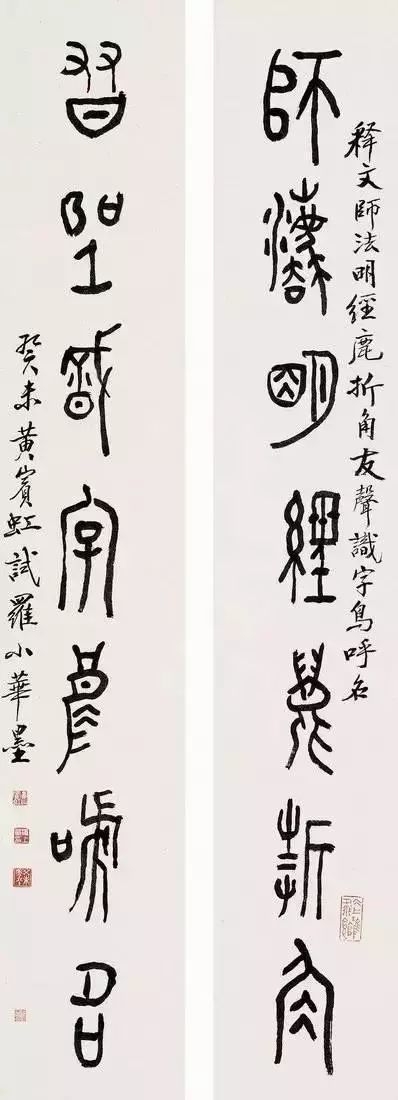 释文師法明經鹿折角友聲識字鳥呼名
師灋明經鹿折角
友聲識字鳥呼名
癸未黃賓虹試羅小華墨